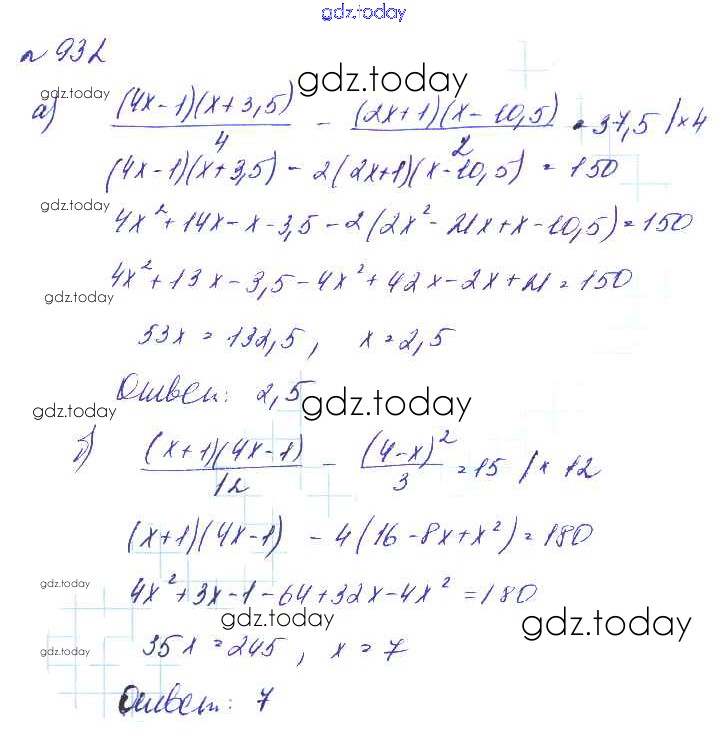 gdz.today
n 932
gdz.today
gdz.today
а) (4x-1)(x+3,5)/4 - (2x+1)(x-10,5)/2 = 37,5 / ×4
(4x-1)(x+3,5) - 2(2x+1)(x-10,5) = 150
gdz.today
4x²+14x-x-3,5-2(2x²-21x+x-10,5)=150
4x²+13x-3,5-4x²+42x-2x+21=150
gdz.today
53x = 132,5, x=2,5
Ответ: 2,5
gdz.today
gdz.today
б) (x+1)(4x-1)/12 - (4-x)²/3 = 15 / × 12
(x+1)(4x-1) - 4(16-8x+x²)=180
gdz.today
4x²+3x-1-64+32x-4x²=180
gdz.today
gdz.today
gdz.today
35x=245, x=7
Ответ: 7